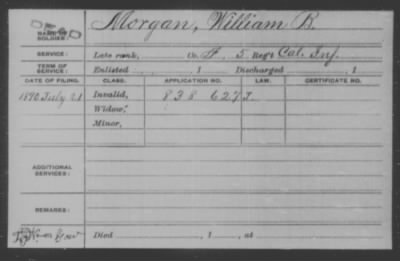 DEAD
NAME OF SOLDIER: Morgan, William B.
SERVICE: Late rank, Co. F, 5 Reg't Cal. Inf.
TERM OF SERVICE: Enlisted , 1 Discharged , 1
DATE OF FILING. CLASS. APPLICATION NO. LAW. CERTIFICATE NO.
1890 July 21 Invalid, 838 627 J.
Widow,
Minor,
ADDITIONAL SERVICES:
REMARKS:
Died , 1 , at